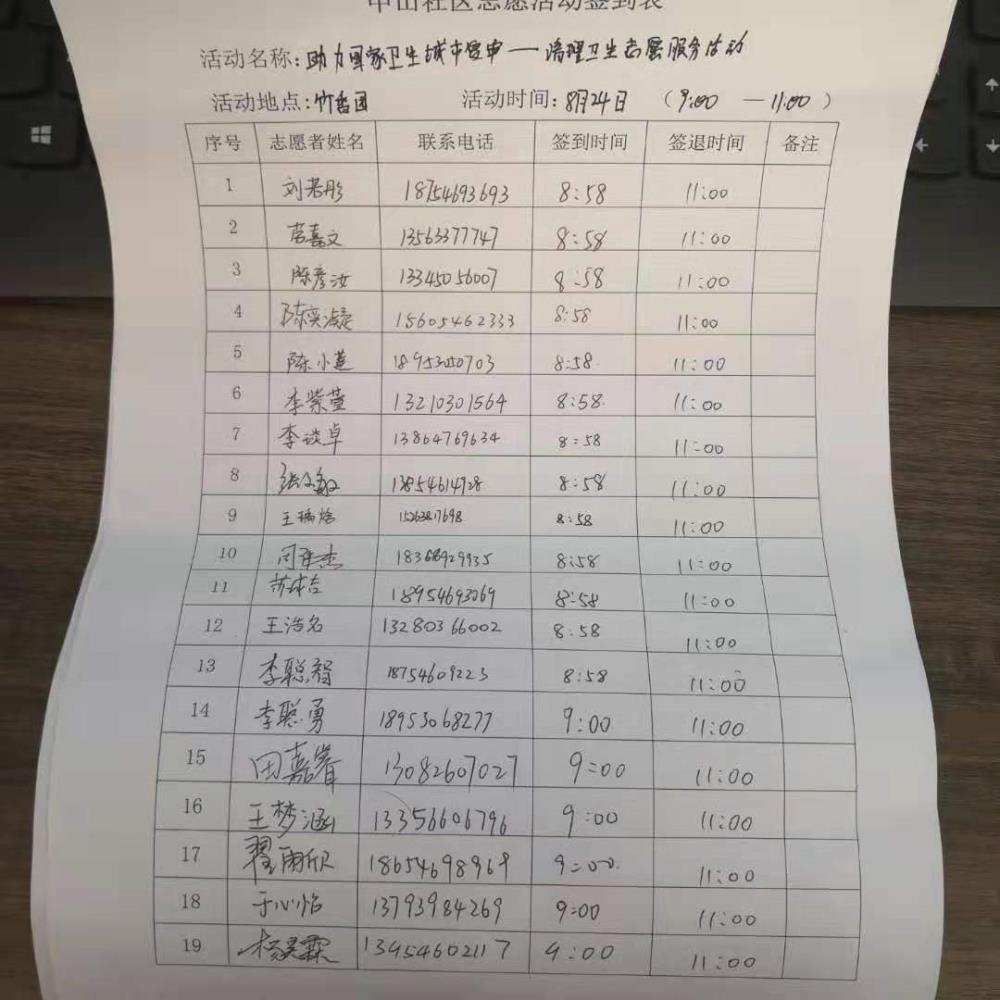 中山社区志愿活动签到表
活动名称：助力国家卫生城市复审——清理卫生志愿服务活动
活动地点：竹香园 活动时间：8月24日 （9:00 — 11:00）
序号 志愿者姓名 联系电话 签到时间 签退时间 备注
1 刘若彤 18754693693 8:58 11:00
2 嘉文 13563377747 8:58 11:00
3 陈彦汝 13345056007 8:58 11:00
4 陈奕凝 15605462333 8:58 11:00
5 陈小莲 18953050703 8:58 11:00
6 李紫萱 13210301564 8:58 11:00
7 李琰卓 13864769634 8:58 11:00
8 张 13854614728 8:58 11:00
9 王瑞晗 15263817698 8:58 11:00
10 闫 杰 18368929935 8:58 11:00
11 18954693069 8:58 11:00
12 王浩名 13280366002 8:58 11:00
13 李聪智 18754609223 8:58 11:00
14 李聪勇 18953068277 9:00 11:00
15 田嘉睿 13082607027 9:00 11:00
16 王梦涵 13356606796 9:00 11:00
17 翟雨欣 18654698969 9:00 11:00
18 于心怡 13793984269 9:00 11:00
19 杨昊霖 13454602117 9:00 11:00